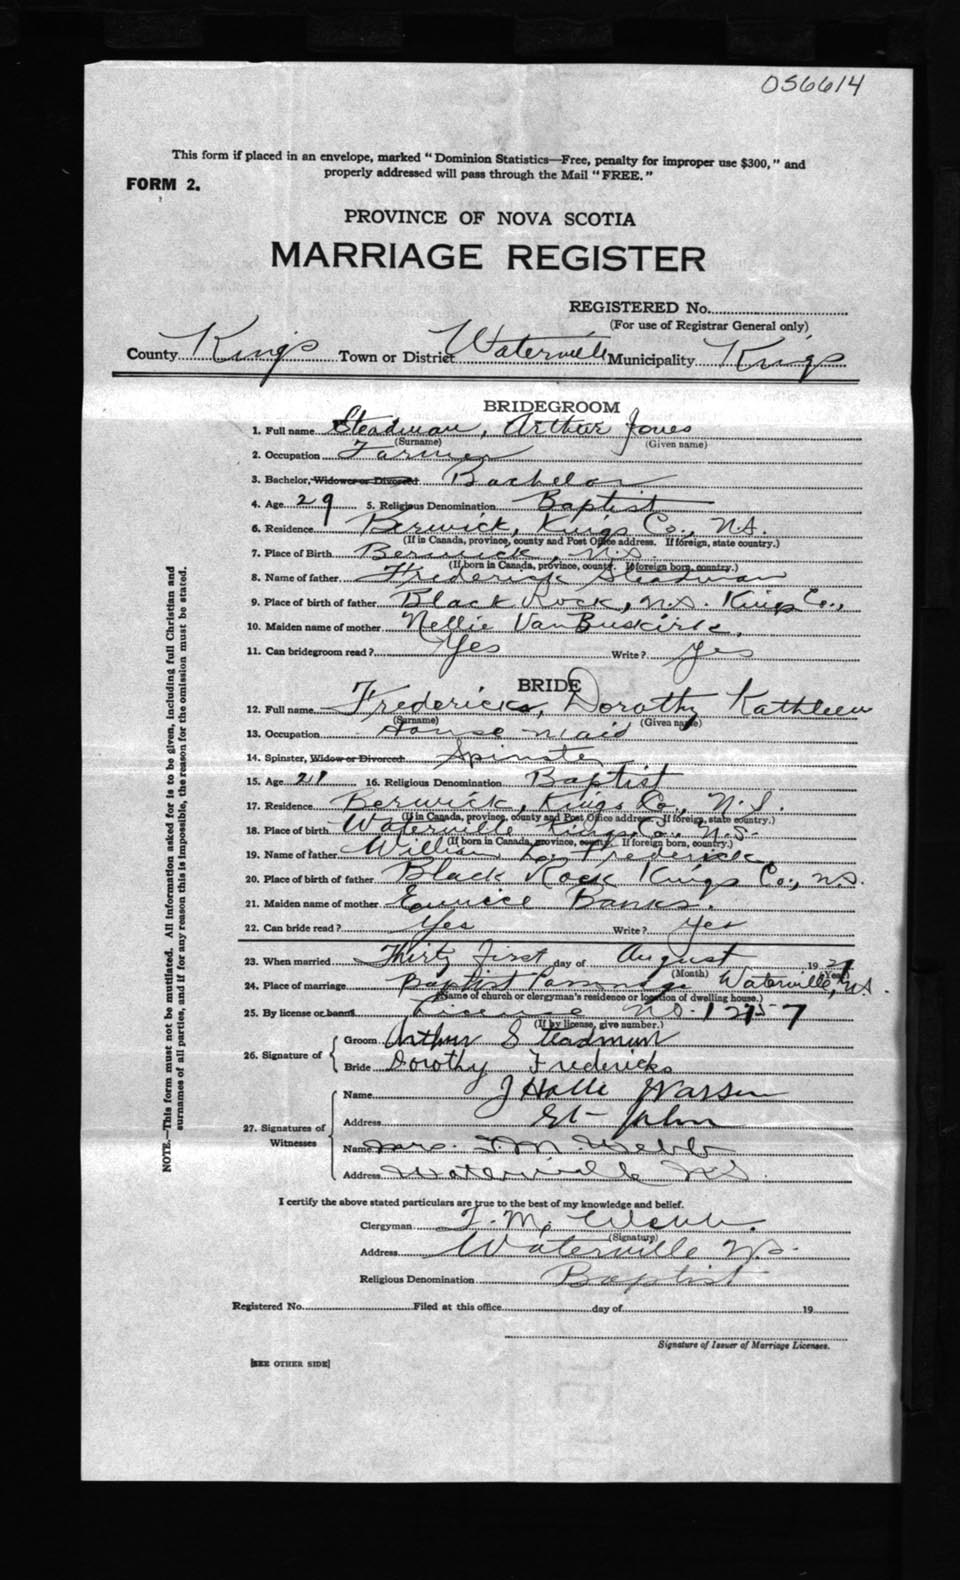 056614
This form if placed in an envelope, marked "Dominion Statistics—Free, penalty for improper use $300," and
properly addressed will pass through the Mail "FREE."
FORM 2.
PROVINCE OF NOVA SCOTIA
MARRIAGE REGISTER
REGISTERED No.
(For use of Registrar General only)
County Kings Town or District Waterville Municipality Kings
BRIDEGROOM
1. Full name Steadman, Arthur Jones
(Surname) (Given name)
2. Occupation Farmer
3. Bachelor, Widower or Divorced Bachelor
4. Age 29 5. Religious Denomination Baptist
6. Residence Berwick, Kings Co., N.S.
(If in Canada, province, county and Post Office address. If foreign, state country.)
7. Place of Birth Berwick, N.S.
(If born in Canada, province, county. If foreign born, country.)
8. Name of father Frederick Steadman
9. Place of birth of father Black Rock, N.S. Kings Co.,
10. Maiden name of mother Nellie VanBuskirk,
11. Can bridegroom read? Yes Write? yes
BRIDE
12. Full name Fredericks, Dorothy Kathleen
(Surname) (Given name)
13. Occupation House maid
14. Spinster, Widow or Divorced Spinster
15. Age 21 16. Religious Denomination Baptist
17. Residence Berwick, Kings Co., N.S.
(If in Canada, province, county and Post Office address. If foreign, state country.)
18. Place of birth Waterville Kings Co., N.S.
(If born in Canada, province, county. If foreign born, country.)
19. Name of father William Fredericks,
20. Place of birth of father Black Rock Kings Co., N.S.
21. Maiden name of mother Eunice Banks.
22. Can bride read? Yes Write? Yes
23. When married Thirty first day of August 19
(Month) (Year)
24. Place of marriage Baptist Parsonage Waterville, N.S.
(Name of church or clergyman's residence or location of dwelling house.)
25. By license or banns License No.
(If by license, give number.)
26. Signature of
Groom Arthur Steadman
Bride Dorothy Fredericks
27. Signatures of Witnesses
Name J
Address St John
Name Mrs. F. M. Webb
Address Waterville N.S.
I certify the above stated particulars are true to the best of my knowledge and belief.
Clergyman F. M.
(Signature)
Address Waterville N.S.
Religious Denomination Baptist
Registered No. Filed at this office day of 19
Signature of Issuer of Marriage Licenses.
[SEE OTHER SIDE]
NOTE.—This form must not be mutilated. All information asked for is to be given, including full Christian and
surnames of all parties, and if for any reason this is impossible, the reason for the omission must be stated.